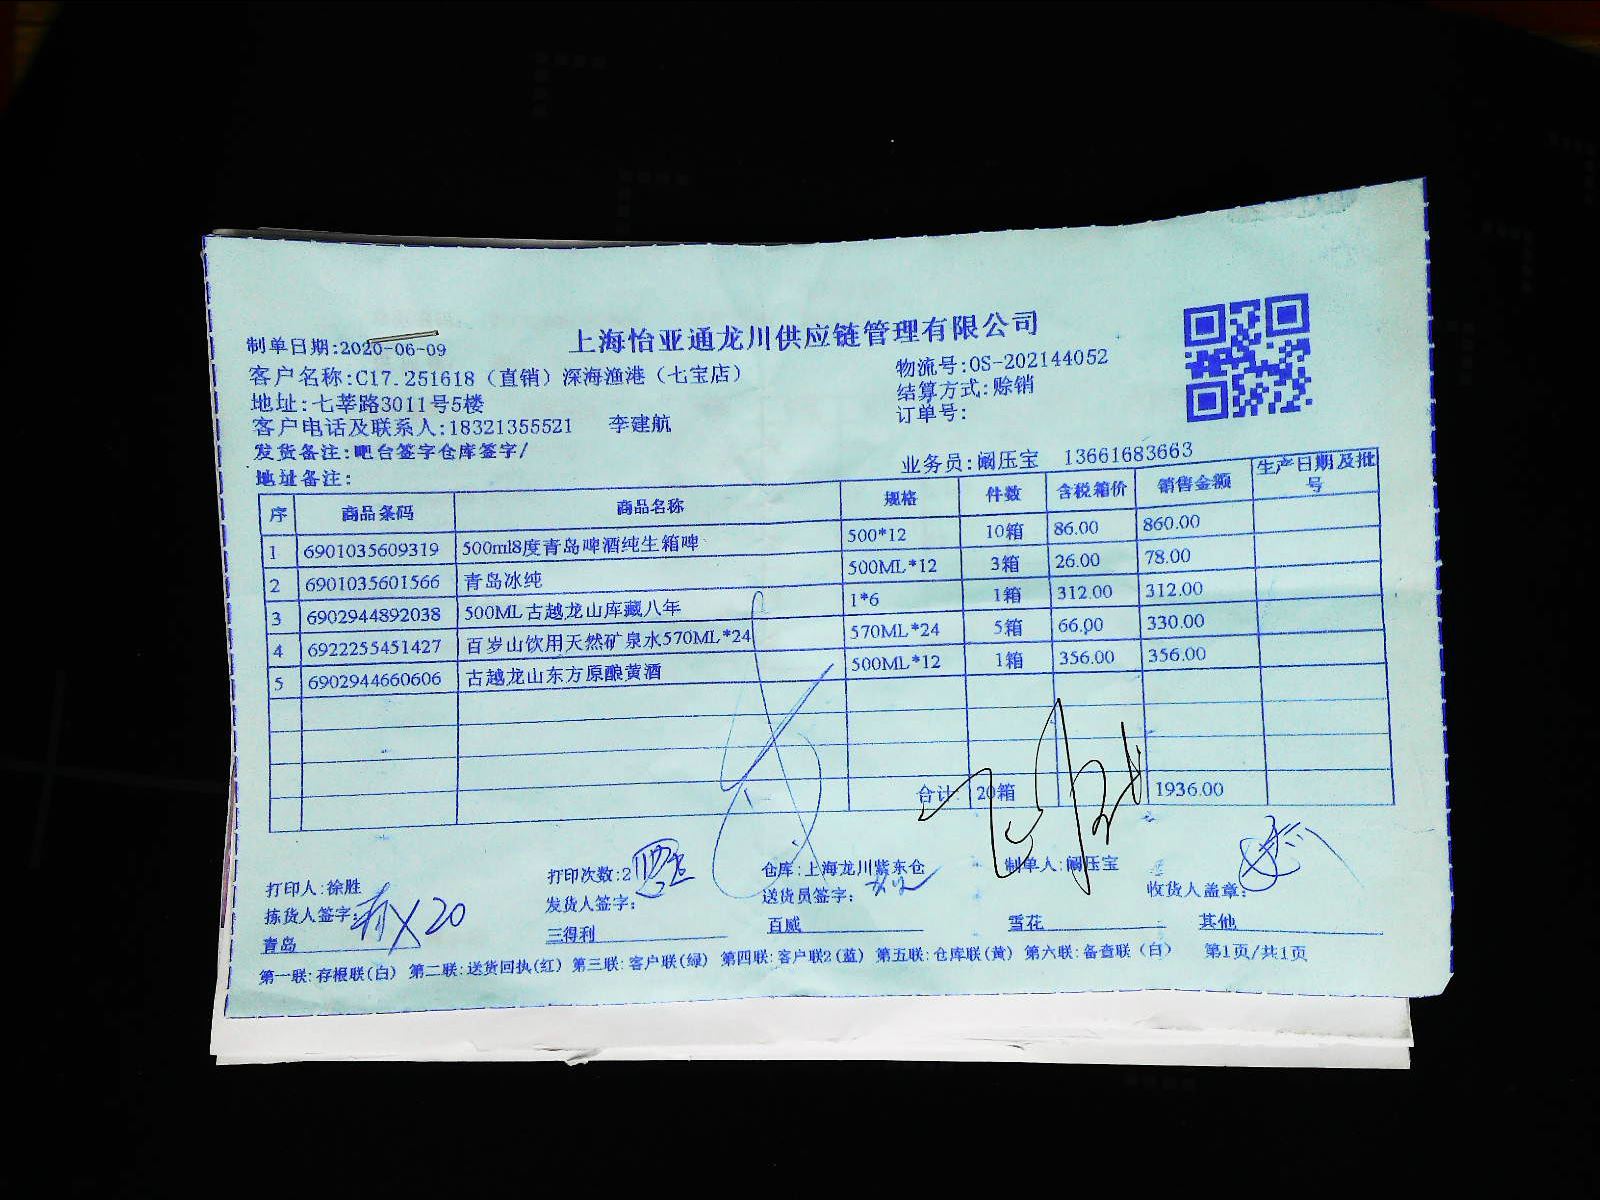 上海怡亚通龙川供应链管理有限公司
制单日期:2020-06-09
客户名称:C17.251618（直销）深海渔港（七宝店） 物流号:OS-202144052
地址:七莘路3011号5楼 结算方式:赊销
客户电话及联系人:18321355521 李建航 订单号:
发货备注:吧台签字仓库签字/ 业务员:阚压宝 13661683663
地址备注:
序 商品条码 商品名称 规格 件数 含税箱价 销售金额 生产日期及批号
1 6901035609319 500ml8度青岛啤酒纯生箱啤 500*12 10箱 86.00 860.00
2 6901035601566 青岛冰纯 500ML*12 3箱 26.00 78.00
3 6902944892038 500ML古越龙山库藏八年 1*6 1箱 312.00 312.00
4 6922255451427 百岁山饮用天然矿泉水570ML*24 570ML*24 5箱 66.00 330.00
5 6902944660606 古越龙山东方原酿黄酒 500ML*12 1箱 356.00 356.00
合计 20箱 1936.00
打印人:徐胜 打印次数:2 仓库:上海龙川紫东仓 制单人:阚压宝 收货人盖章:
拣货人签字: 20 发货人签字: 送货员签字:
青岛 三得利 百威 雪花 其他
第一联:存根联(白) 第二联:送货回执(红) 第三联:客户联(绿) 第四联:客户联2(蓝) 第五联:仓库联(黄) 第六联:备查联（白） 第1页/共1页